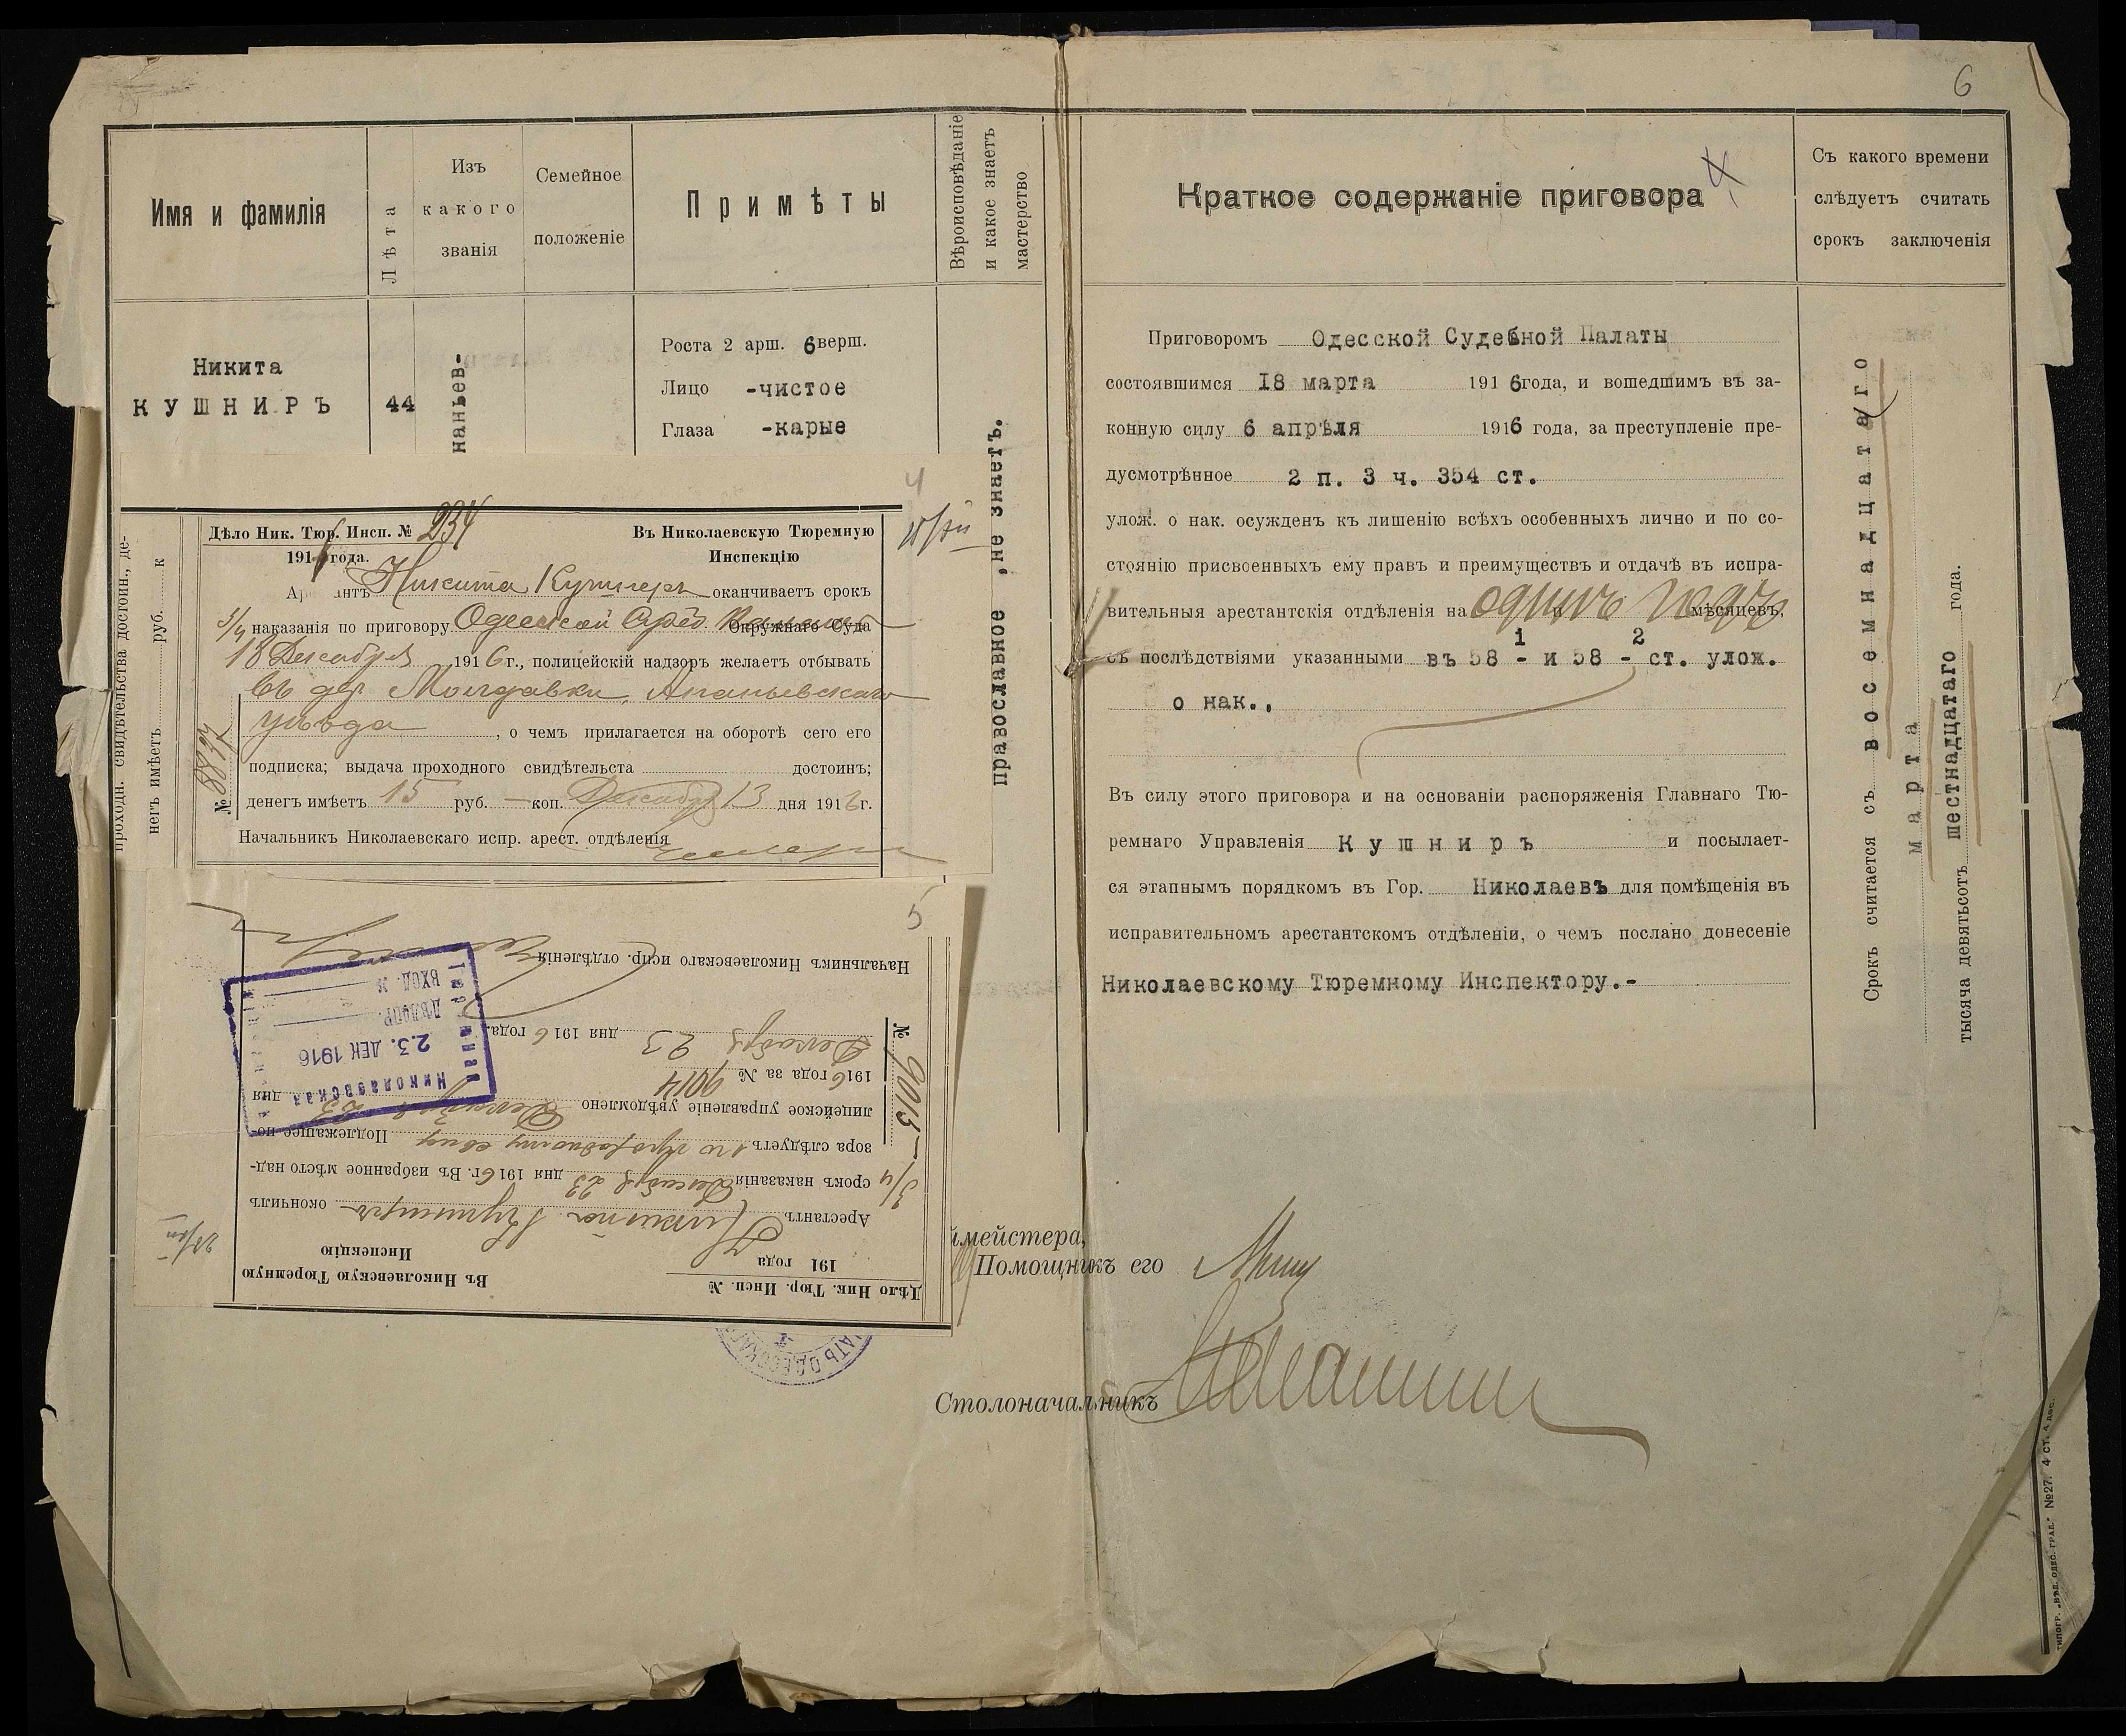 6
Имя и фамилія
Лѣта
Изъ
какого
званія
Семейное
положеніе
Примѣты
Вѣроисповѣданіе
и какое знаетъ
мастерство
Краткое содержаніе приговора
Съ какого времени
слѣдуетъ считать
срокъ заключенія
Никита
КУШНИРЪ
44
наньев-
Роста 2 арш. 6верш.
Лицо -чистое
Глаза -карые
православное ,не знаетъ.
4
проходн. свидѣтельства достоин., де-
негъ имѣетъ руб. к
Дѣло Ник. Тюр. Инсп. № 234
1916 года.
Въ Николаевскую Тюремную
Инспекцію
Арестантъ Никита Кушниръ оканчиваетъ срокъ
3/4 наказанія по приговору Одесской Суд. Палаты Окружнаго Суда
18 Декабря 1916 г., полицейскій надзоръ желаетъ отбывать
въ дер. Молдавки, Ананьевскаго
уѣзда , о чемъ прилагается на оборотѣ сего его
подписка; выдача проходного свидѣтельста достоинъ;
денегъ имѣетъ 15 руб. — коп. Декабря 13 дня 1916 г.
Начальникъ Николаевскаго испр. арест. отдѣленія
№ 8837
5
Дѣло Ник. Тюр. Инсп. №
191 года
Въ Николаевскую Тюремную
Инспекцію
Арестантъ Никита Кушниръ окончилъ
3/4 срокъ наказанія Декабря 23 дня 1916 г. Въ избранное мѣсто над-
зора слѣдуетъ по проходному свид Подлежащее по-
лицейское управленіе увѣдомлено Декабря 23 дня
1916 года за № 9014
Декабря 23 дня 1916 года.
Начальникъ Николаевскаго испр. отдѣленія
№ 9015
Николаевская
23. ДЕК 1916
ДѢЛОПР.
ВХОД. №
Приговоромъ Одесской Судебной Палаты
состоявшимся 18 марта 1916 года, и вошедшимъ въ за-
конную силу 6 апрѣля 1916 года, за преступленіе пре-
дусмотрѣнное 2 п. 3 ч. 354 ст.
улож. о нак. осужденъ къ лишенію всѣхъ особенныхъ лично и по со-
стоянію присвоенныхъ ему правъ и преимуществъ и отдачѣ въ испра-
вительныя арестантскія отдѣленія на одинъ годъ мѣсяцевъ,
съ послѣдствіями указанными въ 58 - 1 и 58 - 2 ст. улож.
о нак.,
Въ силу этого приговора и на основаніи распоряженія Главнаго Тю-
ремнаго Управленія Кушниръ и посылает-
ся этапнымъ порядкомъ въ Гор. Николаевъ для помѣщенія въ
исправительномъ арестантскомъ отдѣленіи, о чемъ послано донесеніе
Николаевскому Тюремному Инспектору.-
Срокъ считается съ восемнадцатаго
марта
тысяча девятьсотъ шестнадцатаго года.
ймейстера,
Помощникъ его
Столоначальникъ
ТИПОГР. „ВѢД. ОДЕС. ГРАД." №27. 4 СТ. 4 дес.